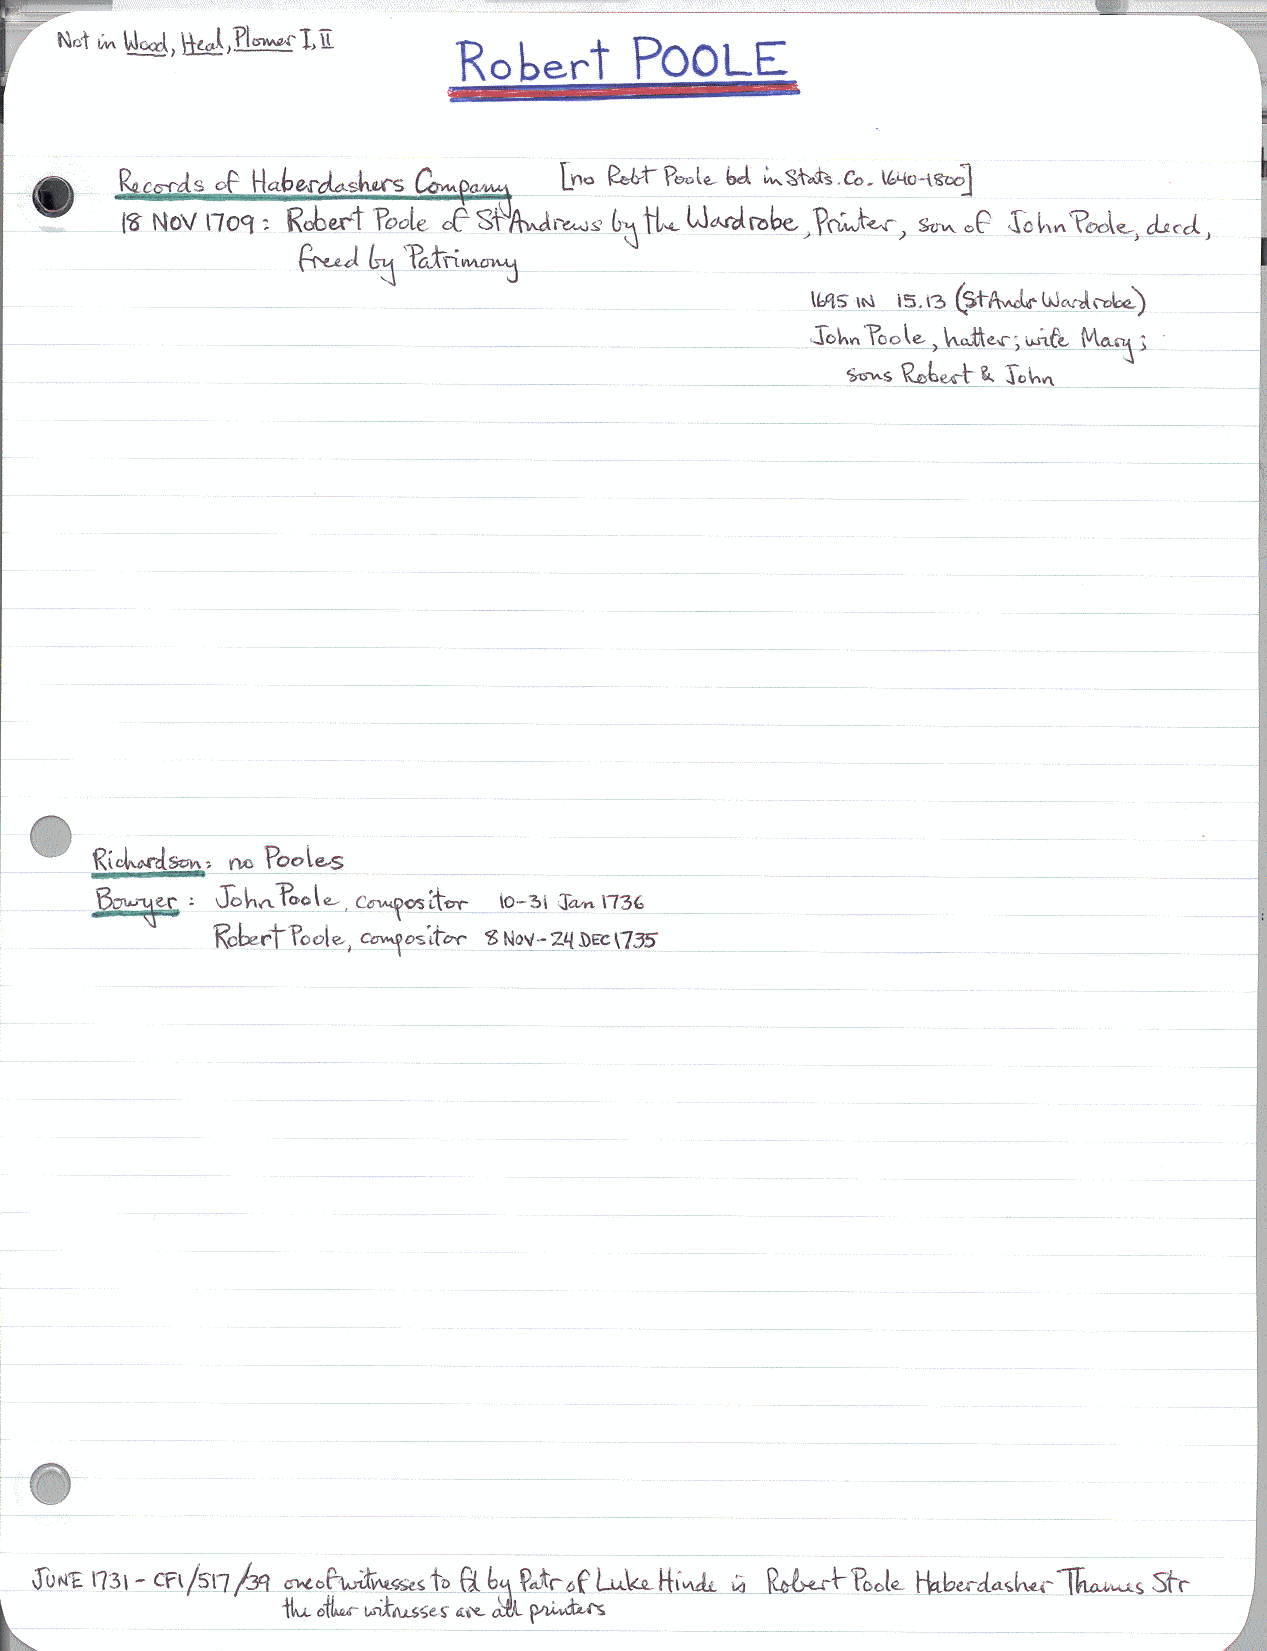 Not in Wood, Heal, Plomer I, II
Robert POOLE
Records of Haberdashers Company [no Robt Poole bd in Stats. Co. 1640-1800]
18 NOV 1709: Robert Poole of St Andrews by the Wardrobe, Printer, son of John Poole, decd,
freed by Patrimony
1695 IN 15.13 (St Andr Wardrobe)
John Poole, hatter; wife Mary;
sons Robert & John
Richardson: no Pooles
Bowyer: John Poole, compositor 10-31 Jan 1736
Robert Poole, compositor 8 NOV - 24 DEC 1735
JUNE 1731 - CF1/517/39 one of witnesses to fd by Patr of Luke Hinde is Robert Poole Haberdasher Thames Str
the other witnesses are all printers